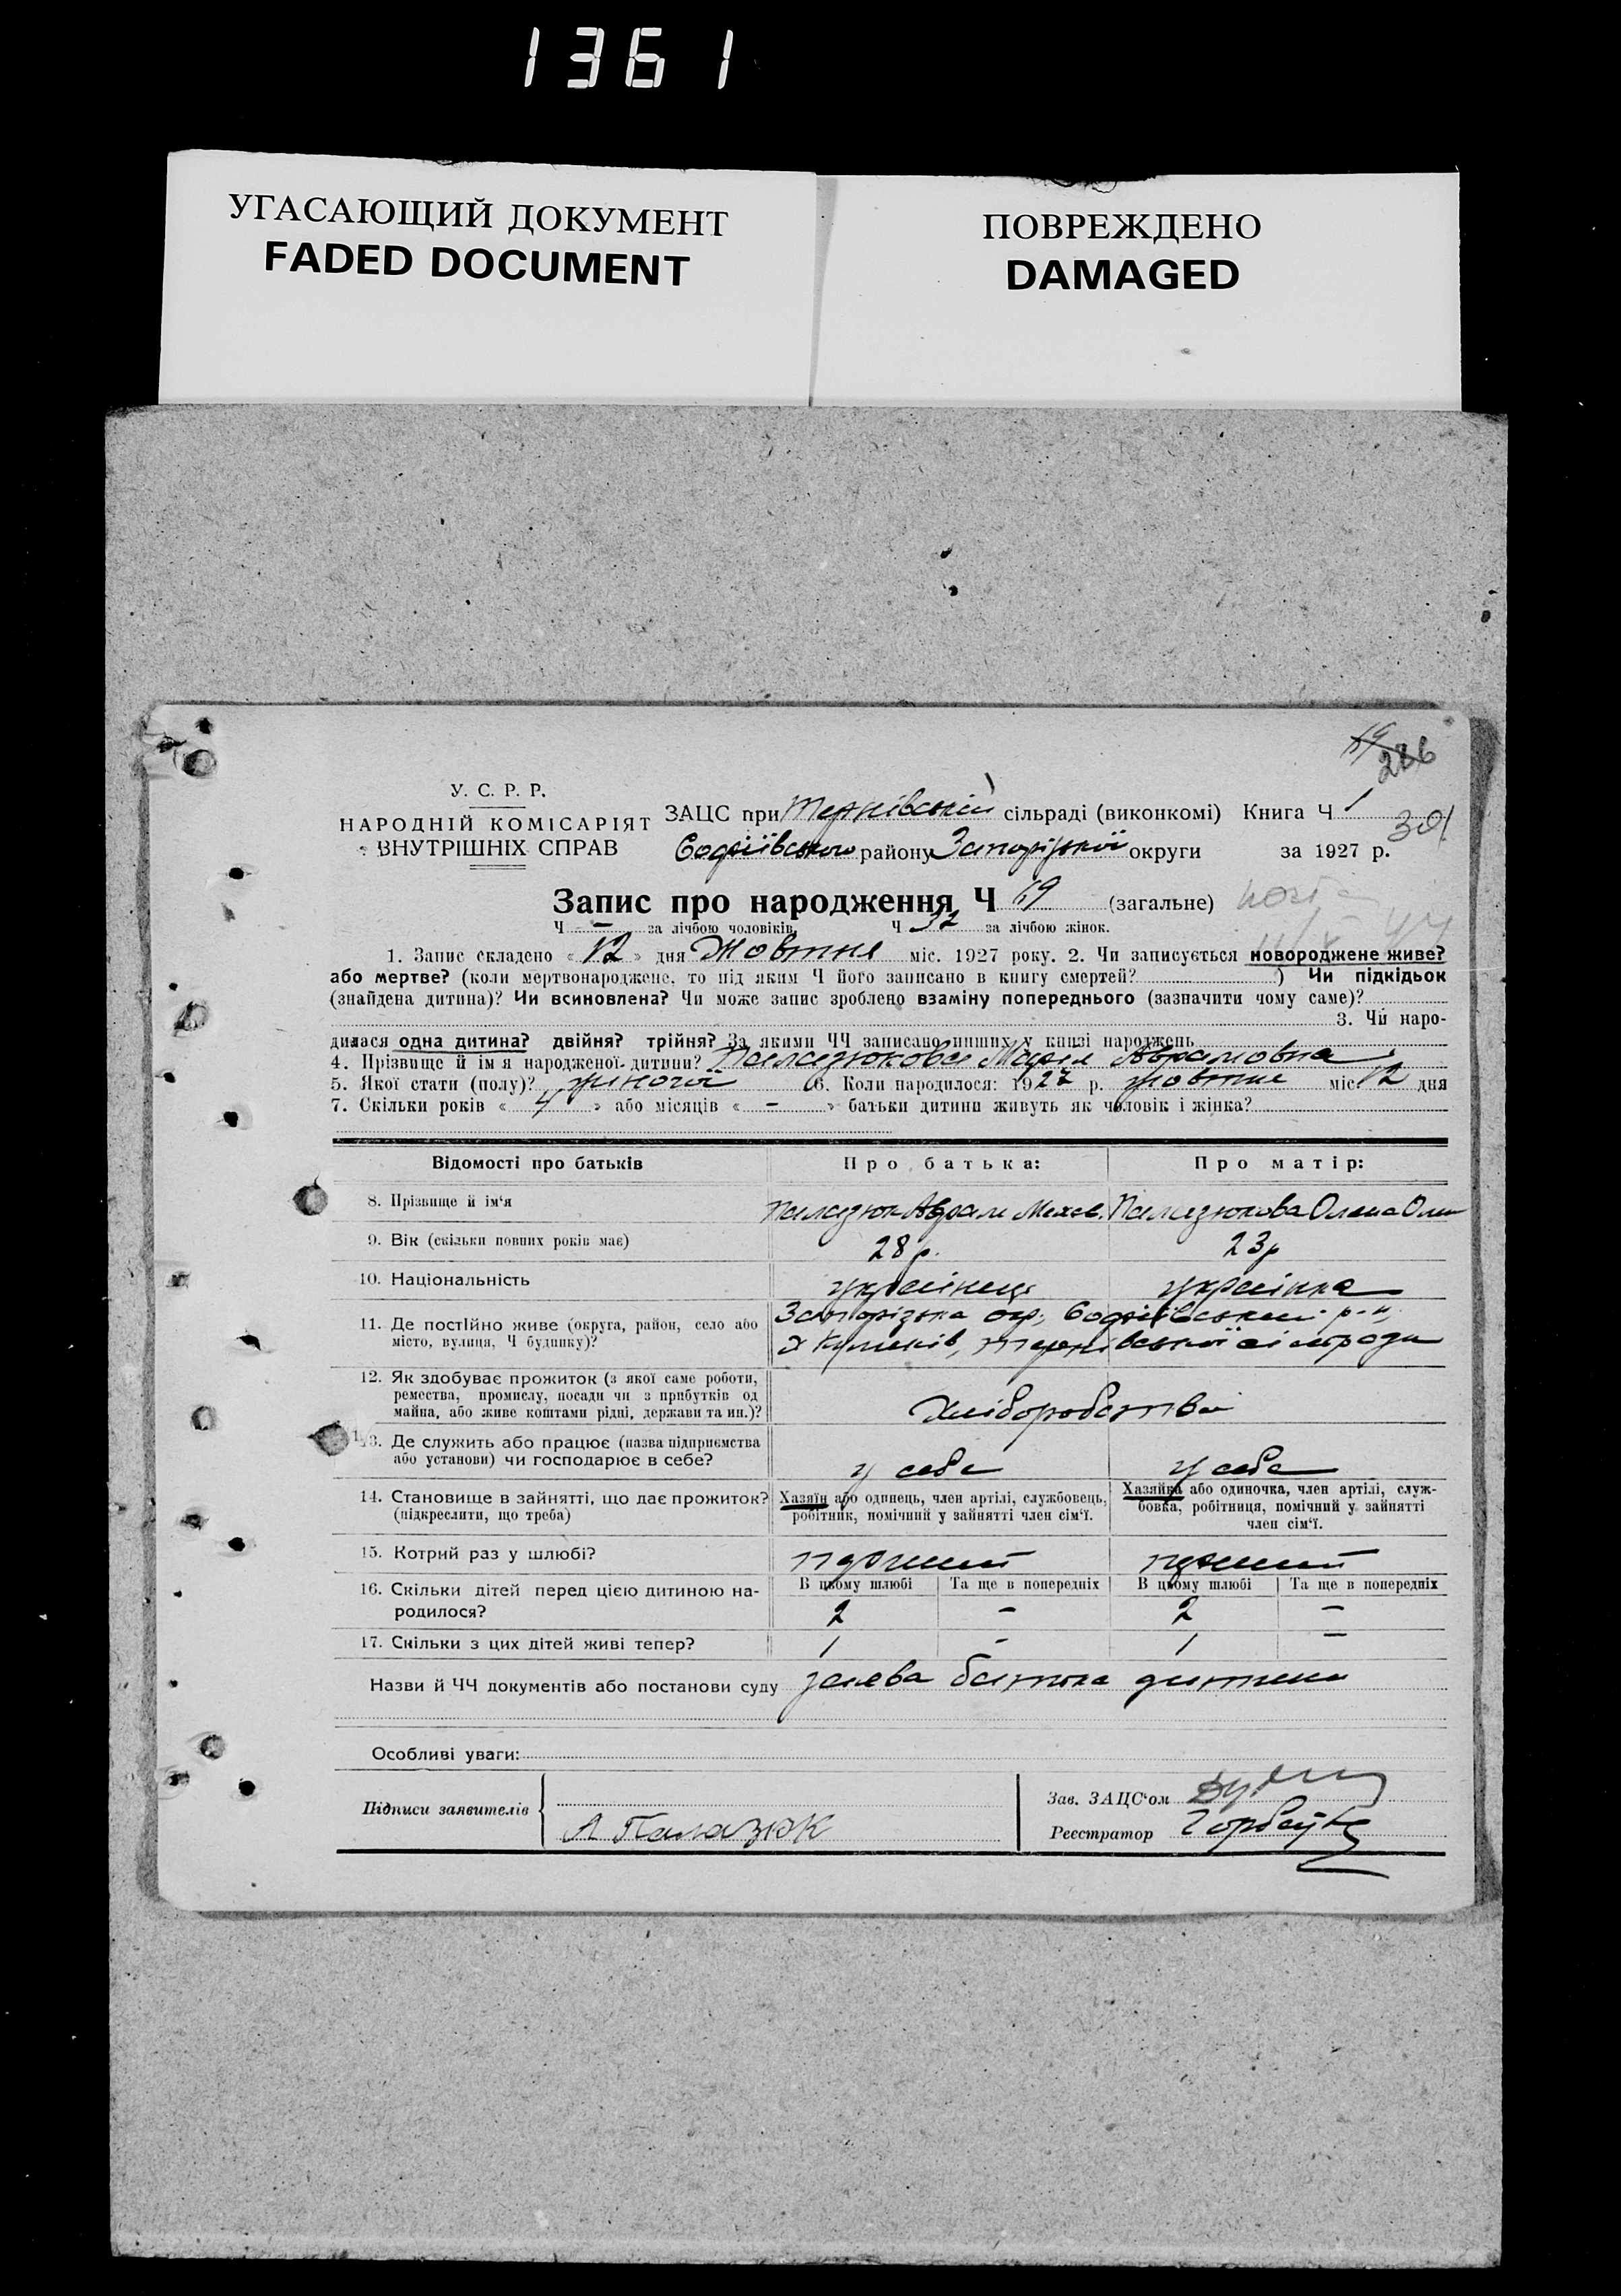 1361
УГАСАЮЩИЙ ДОКУМЕНТ
FADED DOCUMENT
ПОВРЕЖДЕНО
DAMAGED
19
286
301
У. С. Р. Р.
НАРОДНІЙ КОМІСАРІЯТ
ВНУТРІШНІХ СПРАВ
ЗАЦС при Тернівській сільраді (виконкомі) Книга Ч 1
Софіївського району Запорізької округи за 1927 р.
Запис про народження Ч 69 (загальне)
Ч - за лічбою чоловіків, Ч 32 за лічбою жінок.
1. Запис складено « 12 » дня Жовтня міс. 1927 року. 2. Чи записується новороджене живе?
або мертве? (коли мертвонароджене, то під яким Ч його записано в книгу смертей? ) Чи підкідьок
(знайдена дитина)? Чи всиновлена? Чи може запис зроблено взаміну попереднього (зазначити чому саме)?
3. Чи наро-
дилася одна дитина? двійня? трійня? За якими ЧЧ записано инших у книзі народжень
4. Прізвище й ім'я народженої дитини? Палазюкова Марія Абрамовна
5. Якої стати (полу)? жіночої 6. Коли народилося: 1927 р. жовтня міс 12 дня
7. Скільки років « 4 » або місяців « - » батьки дитини живуть як чоловік і жінка?
Відомості про батьків Про батька: Про матір:
8. Прізвище й ім'я Палазюк Абрам Михов. Палазюкова Олена Олек
9. Вік (скільки повних років має) 28 р. 23 р
10. Національність українець українка
11. Де постійно живе (округа, район, село або Запорізька окр, Софіївський р-н,
місто, вулиця, Ч будинку)? х тернівської сільради
12. Як здобуває прожиток (з якої саме роботи,
ремества, промислу, посади чи з прибутків од
майна, або живе коштами рідні, держави та ин.)? Хліборобства
13. Де служить або працює (назва підприємства
або установи) чи господарює в себе? у себе у себе
14. Становище в зайнятті, що дає прожиток? Хазяїн або одинець, член артілі, службовець, Хазяйка або одиночка, член артілі, служ-
(підкреслити, що треба) робітник, помічний у зайнятті член сім'ї. бовка, робітниця, помічний у зайнятті
член сім'ї.
15. Котрий раз у шлюбі? перший перший
16. Скільки дітей перед цією дитиною на- В цьому шлюбі Та ще в попередніх В цьому шлюбі Та ще в попередніх
родилося? 2 - 2 -
17. Скільки з цих дітей живі тепер? 1 - 1 -
Назви й ЧЧ документів або постанови суду заява батька дитини
Особливі уваги:
Підписи заявителів
А Палазюк
Зав. ЗАЦС'ом
Реєстратор